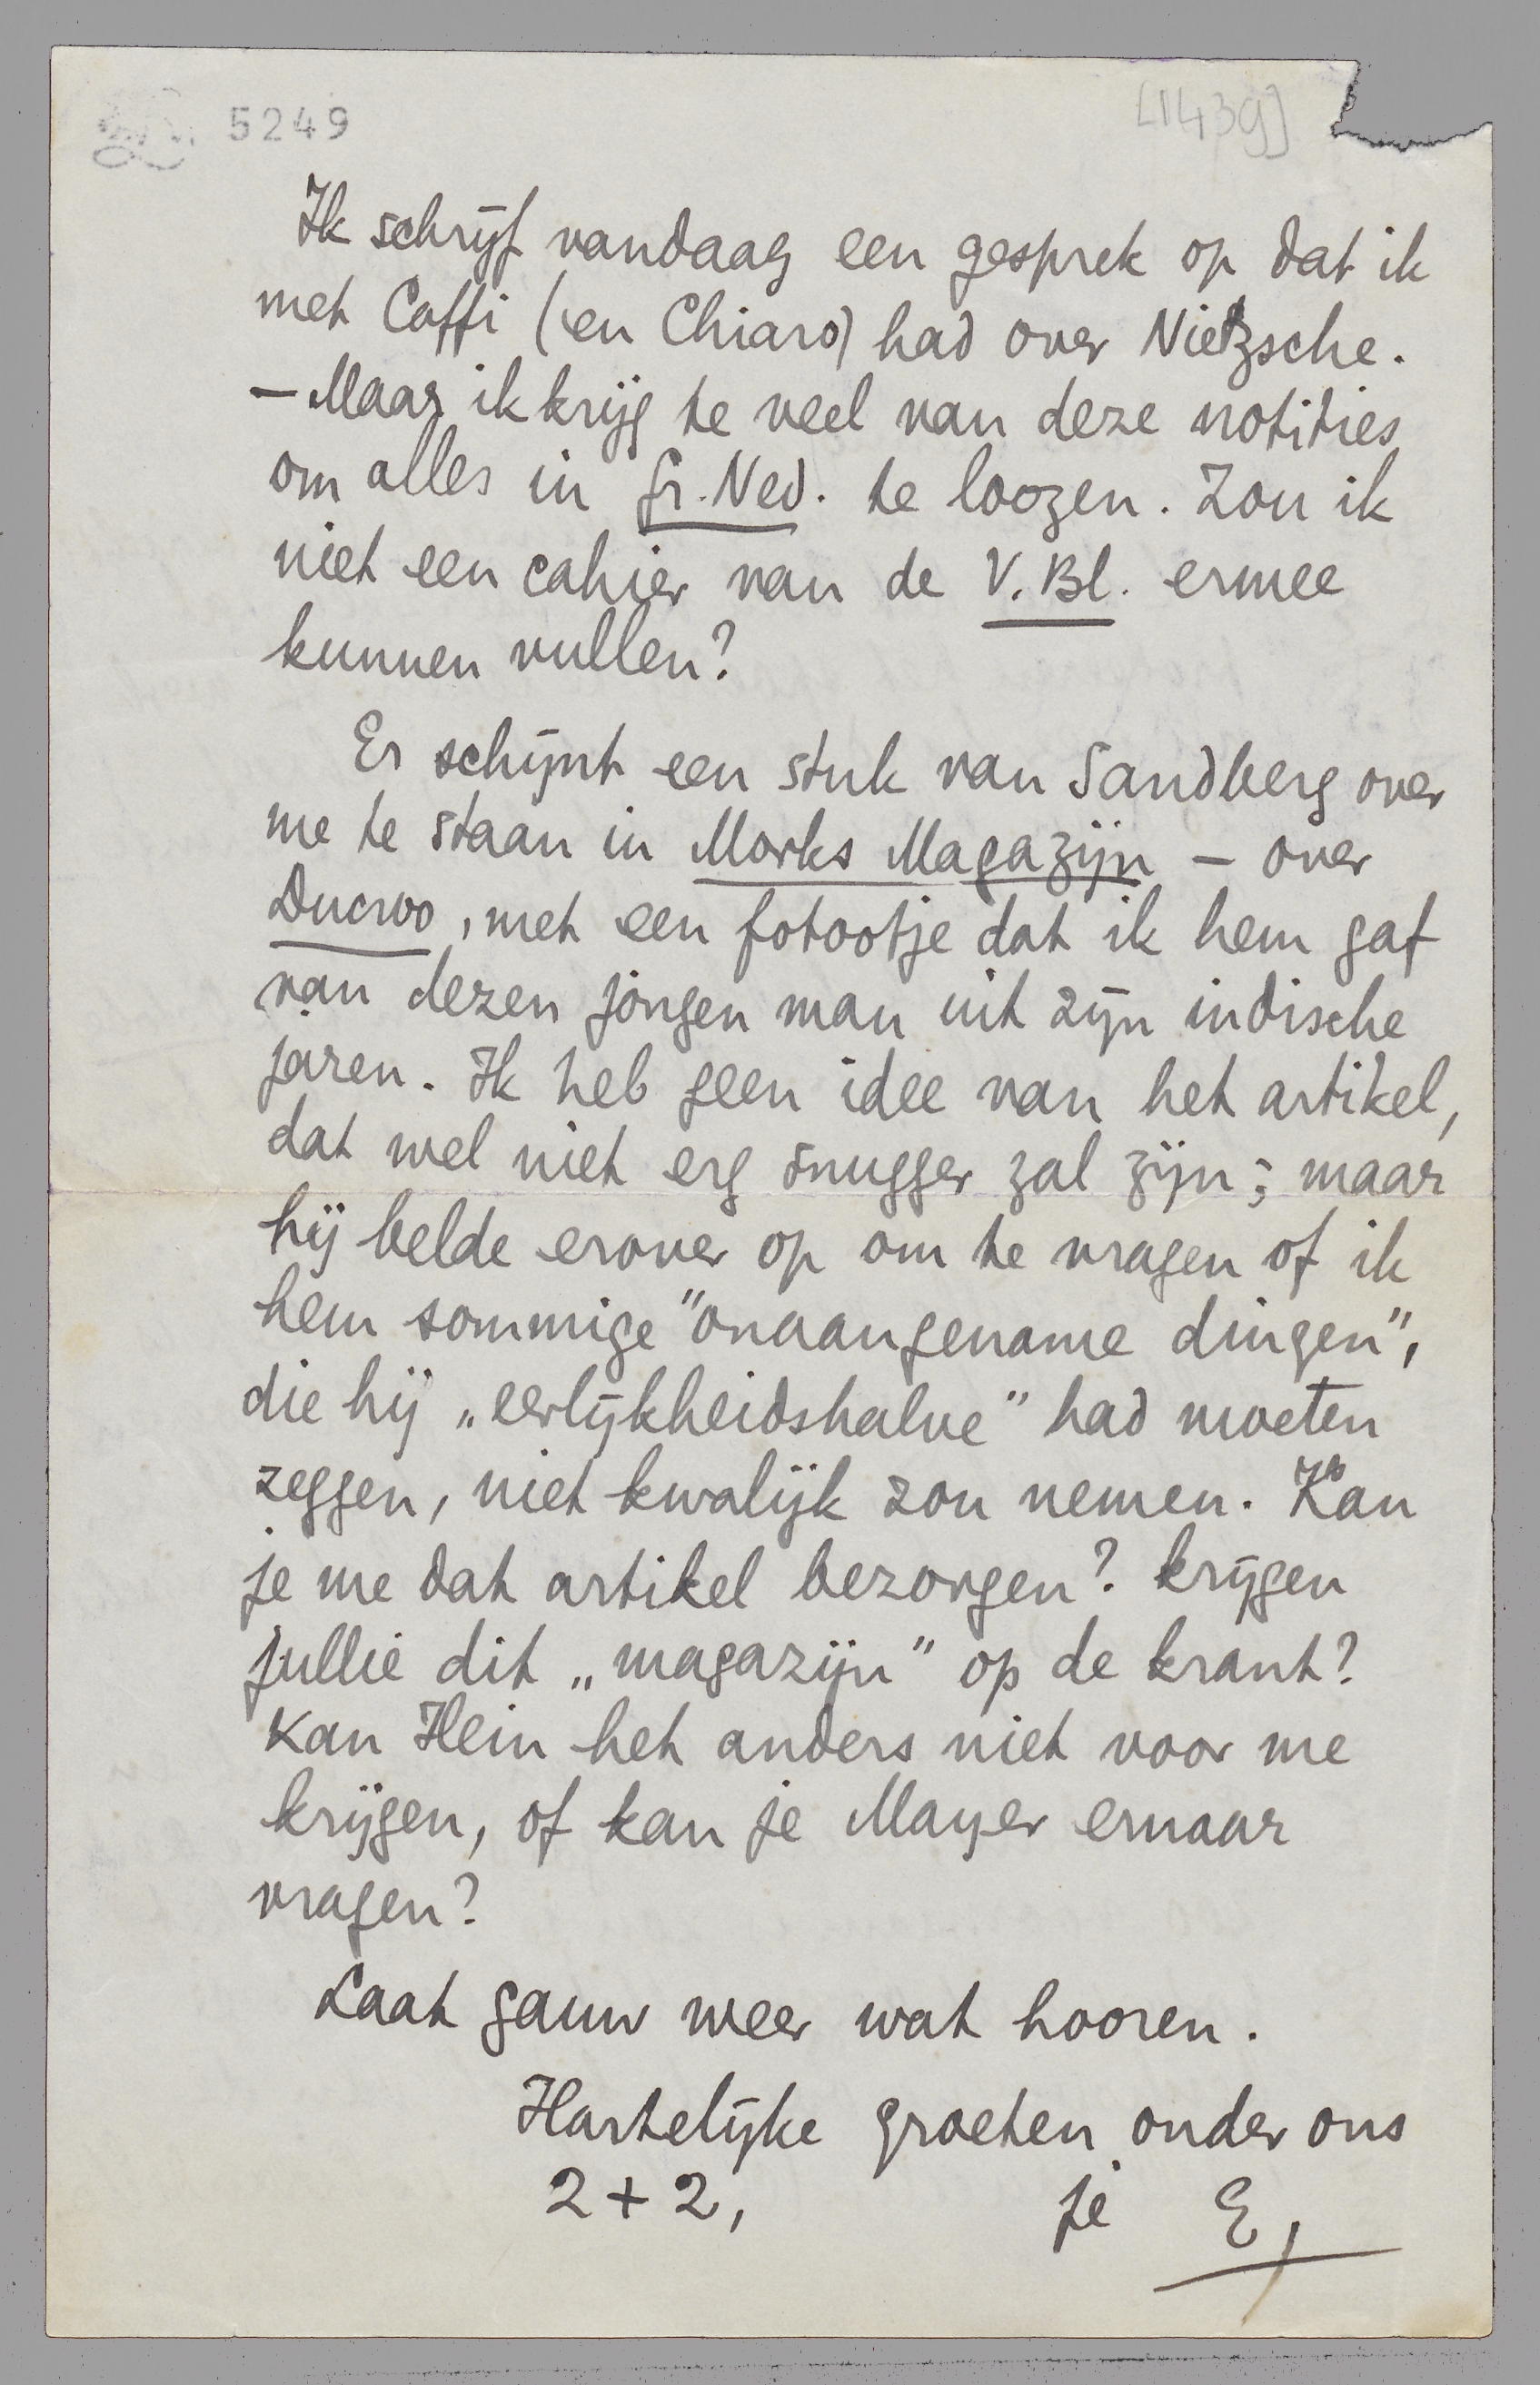 5249
[1439]
Ik schrijf vandaag een gesprek op dat ik
met Caffi (en Chiaro) had over Nietzsche.
– Maar ik krijg te veel van deze notities
om alles in Gr. Ned. te loozen. Zou ik
niet een cahier van de V. Bl. ermee
kunnen vullen?
Er schijnt een stuk van Sandberg over
me te staan in Morks Magazijn – over
Ducroo, met een fotootje dat ik hem gaf
van dezen jongen man uit zijn indische
jaren. Ik heb geen idee van het artikel,
dat wel niet erg snugger zal zijn; maar
hij belde erover op om te vragen of ik
hem sommige "onaangename dingen",
die hij „eerlijkheidshalve" had moeten
zeggen, niet kwalijk zou nemen. Kan
je me dat artikel bezorgen? krijgen
jullie dit „magazijn" op de krant?
Kan Hein het anders niet voor me
krijgen, of kan je Mayer ernaar
vragen?
Laat gauw weer wat hooren.
Hartelijke groeten onder ons
2 + 2, je E,